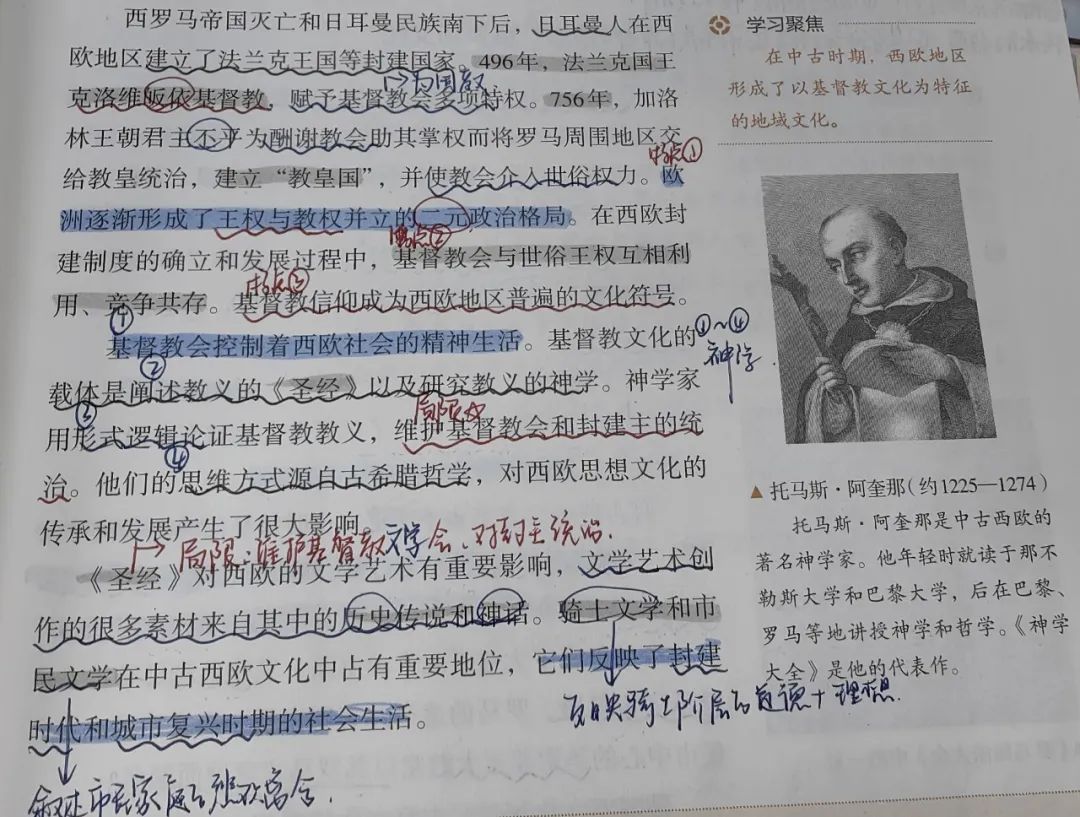 西罗马帝国灭亡和日耳曼民族南下后，日耳曼人在西
欧地区建立了法兰克王国等封建国家。496年，法兰克国王
→为国教
克洛维皈依基督教，赋予基督教会多项特权。756年，加洛
林王朝君主丕平为酬谢教会助其掌权而将罗马周围地区交
特点①
给教皇统治，建立“教皇国”，并使教会介入世俗权力。欧
洲逐渐形成了王权与教权并立的二元政治格局。在西欧封
特点②
建制度的确立和发展过程中，基督教会与世俗王权互相利
特点③
用、竞争共存。基督教信仰成为西欧地区普遍的文化符号。
①
基督教会控制着西欧社会的精神生活。基督教文化的
①~④
神学
②
载体是阐述教义的《圣经》以及研究教义的神学。神学家
③
局限
用形式逻辑论证基督教教义，维护基督教会和封建主的统
④
治。他们的思维方式源自古希腊哲学，对西欧思想文化的
传承和发展产生了很大影响。
→局限：维护基督教会、封主统治.
《圣经》对西欧的文学艺术有重要影响，文学艺术创
作的很多素材来自其中的历史传说和神话。骑士文学和市
民文学在中古西欧文化中占有重要地位，它们反映了封建
时代和城市复兴时期的社会生活。
反映骑士阶层的道德+理想.
叙述市民家庭的悲欢离合.
学习聚焦
在中古时期，西欧地区
形成了以基督教文化为特征
的地域文化。
▲托马斯·阿奎那（约1225—1274）
托马斯·阿奎那是中古西欧的
著名神学家。他年轻时就读于那不
勒斯大学和巴黎大学，后在巴黎、
罗马等地讲授神学和哲学。《神学
大全》是他的代表作。